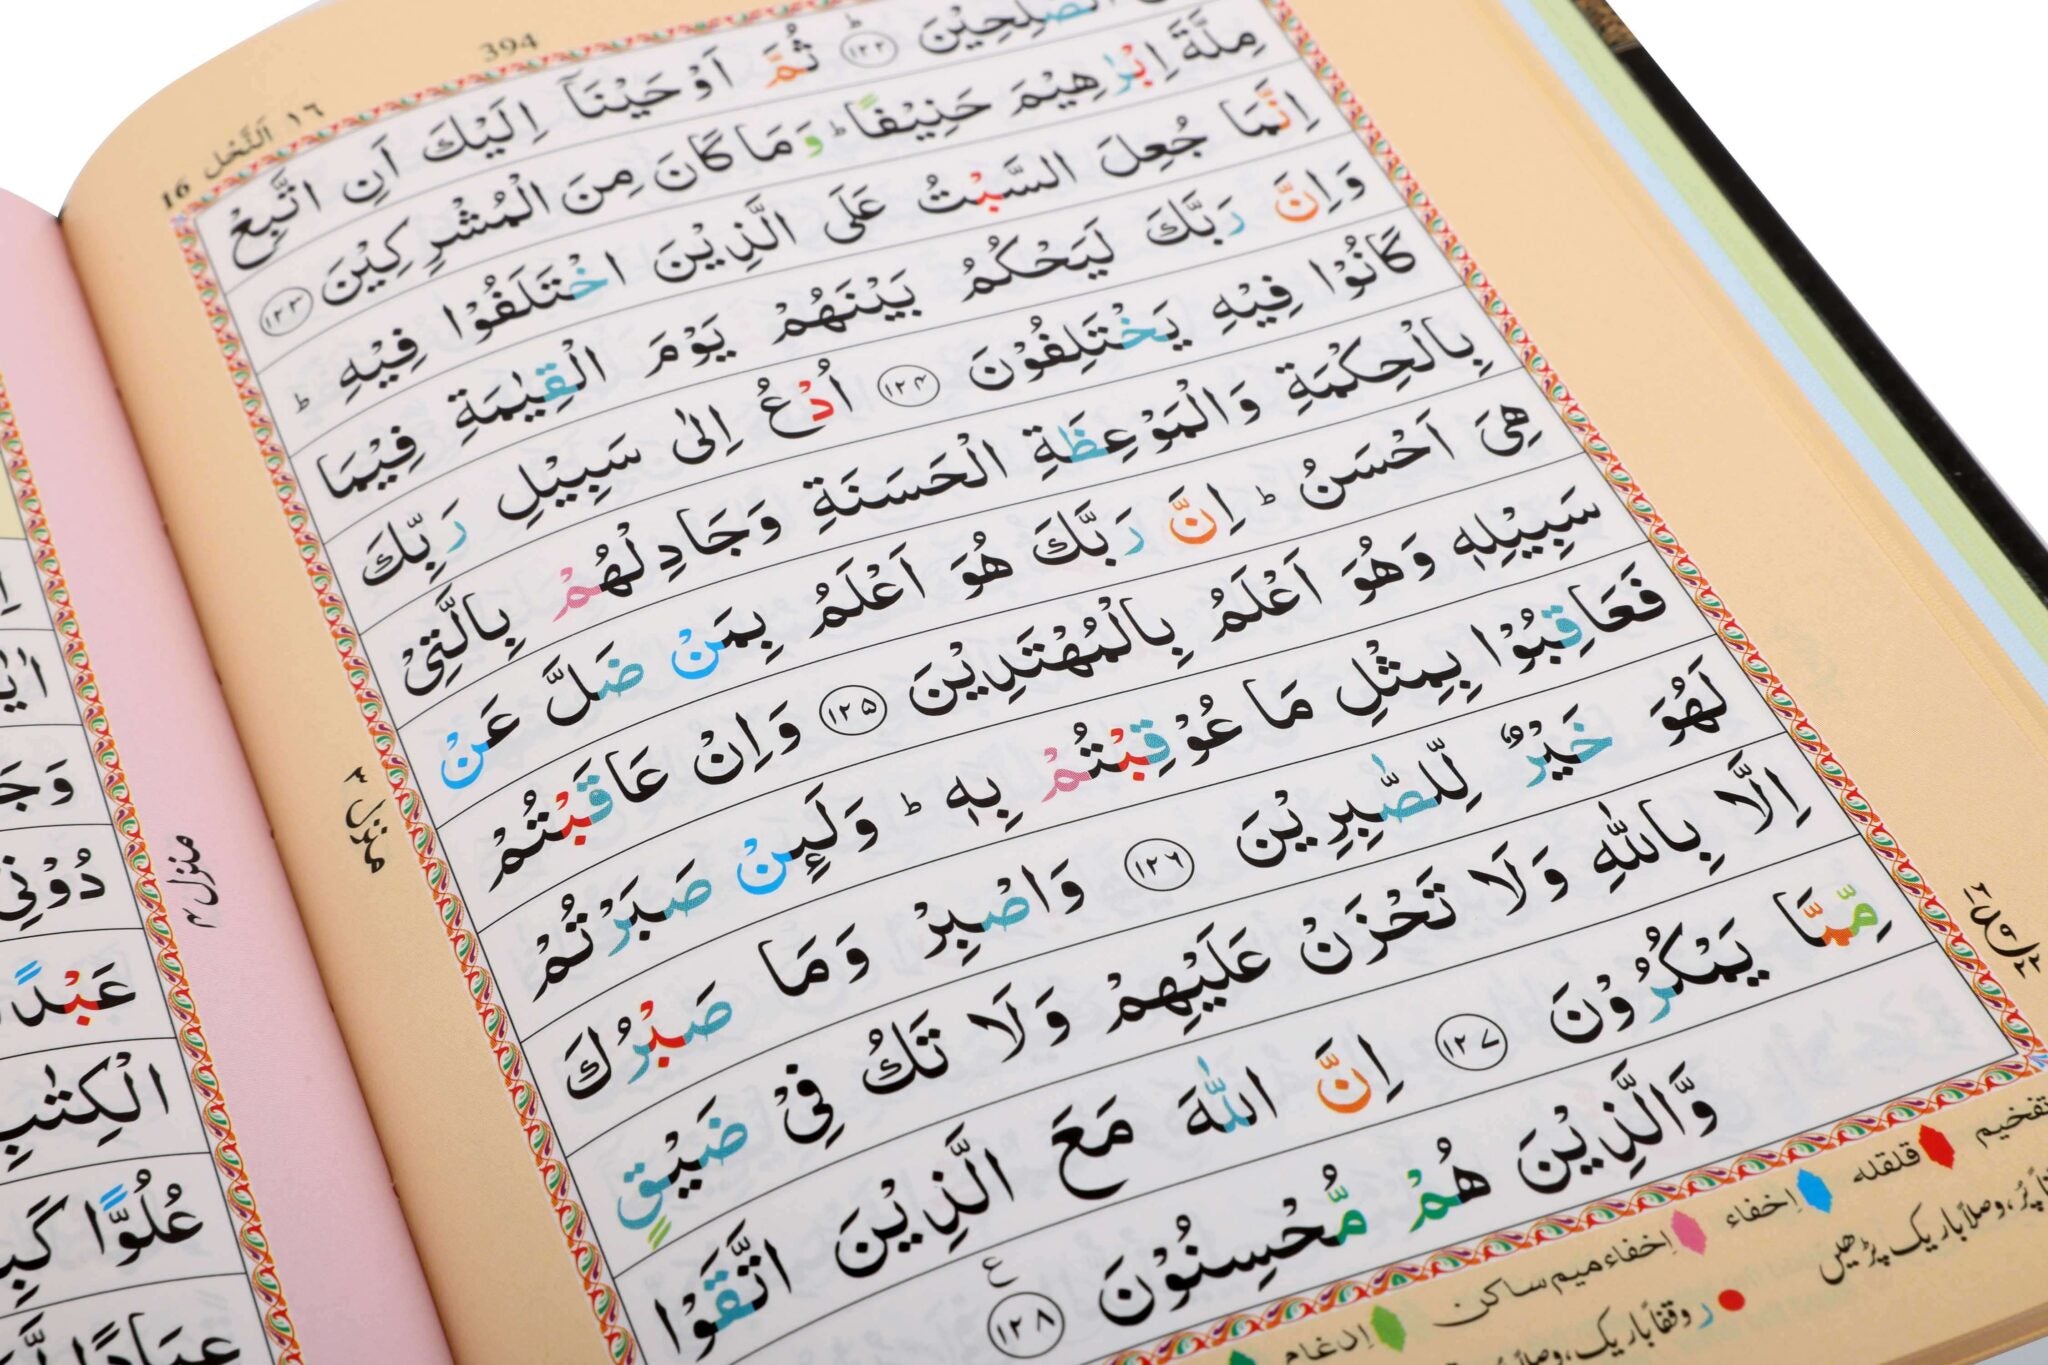 394
١٦ اَلنَّحْل 16
الصّٰلِحِيْنَ ؕ ﴿١٢٢﴾ ثُمَّ اَوْحَيْنَاۤ اِلَيْكَ اَنِ اتَّبِعْ
مِلَّةَ اِبْرٰهِيْمَ حَنِيْفًا ؕ وَمَا كَانَ مِنَ الْمُشْرِكِيْنَ ﴿١٢٣﴾
اِنَّمَا جُعِلَ السَّبْتُ عَلَى الَّذِيْنَ اخْتَلَفُوْا فِيْهِ ؕ
وَاِنَّ رَبَّكَ لَيَحْكُمُ بَيْنَهُمْ يَوْمَ الْقِيٰمَةِ فِيْمَا
كَانُوْا فِيْهِ يَخْتَلِفُوْنَ ﴿١٢٤﴾ اُدْعُ اِلٰى سَبِيْلِ رَبِّكَ
بِالْحِكْمَةِ وَالْمَوْعِظَةِ الْحَسَنَةِ وَجَادِلْهُمْ بِالَّتِيْ
هِيَ اَحْسَنُ ؕ اِنَّ رَبَّكَ هُوَ اَعْلَمُ بِمَنْ ضَلَّ عَنْ
سَبِيْلِهٖ وَهُوَ اَعْلَمُ بِالْمُهْتَدِيْنَ ﴿١٢٥﴾ وَاِنْ عَاقَبْتُمْ
فَعَاقِبُوْا بِمِثْلِ مَا عُوْقِبْتُمْ بِهٖ ؕ وَلَئِنْ صَبَرْتُمْ
لَهُوَ خَيْرٌ لِّلصّٰبِرِيْنَ ﴿١٢٦﴾ وَاصْبِرْ وَمَا صَبْرُكَ
اِلَّا بِاللّٰهِ وَلَا تَحْزَنْ عَلَيْهِمْ وَلَا تَكُ فِيْ ضَيْقٍ
مِّمَّا يَمْكُرُوْنَ ﴿١٢٧﴾ اِنَّ اللّٰهَ مَعَ الَّذِيْنَ اتَّقَوْا
وَّالَّذِيْنَ هُمْ مُّحْسِنُوْنَ ﴿١٢٨﴾ ع
منزل ٣
تفخیم قلقله اِخفاء اِخفاء میم ساکن اِدغام
ر وقفاً باریک، وصلاً پُر، وصلاً باریک پڑھیں
منزل ۴
وَجَ
دُوْنِيْ
عَبْدًا
الْكِتٰبِ
عُلُوًّا كَبِ